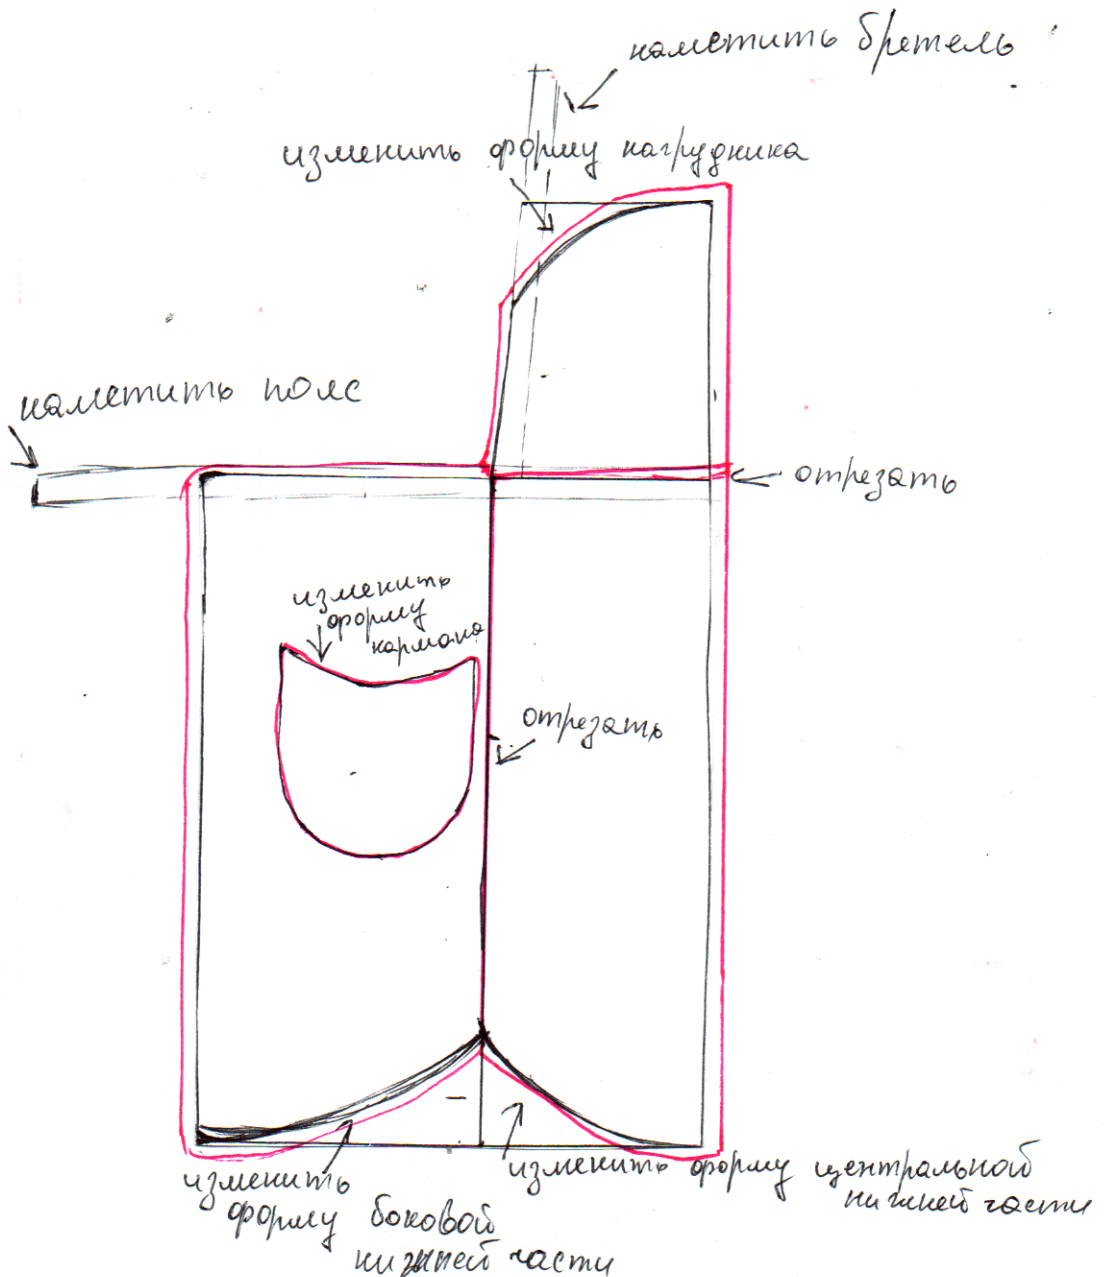 наметить бретель
изменить форму нагрудника
наметить пояс
отрезать
изменить
форму
кармана
отрезать
изменить форму центральной
нижней части
изменить
форму боковой
нижней части